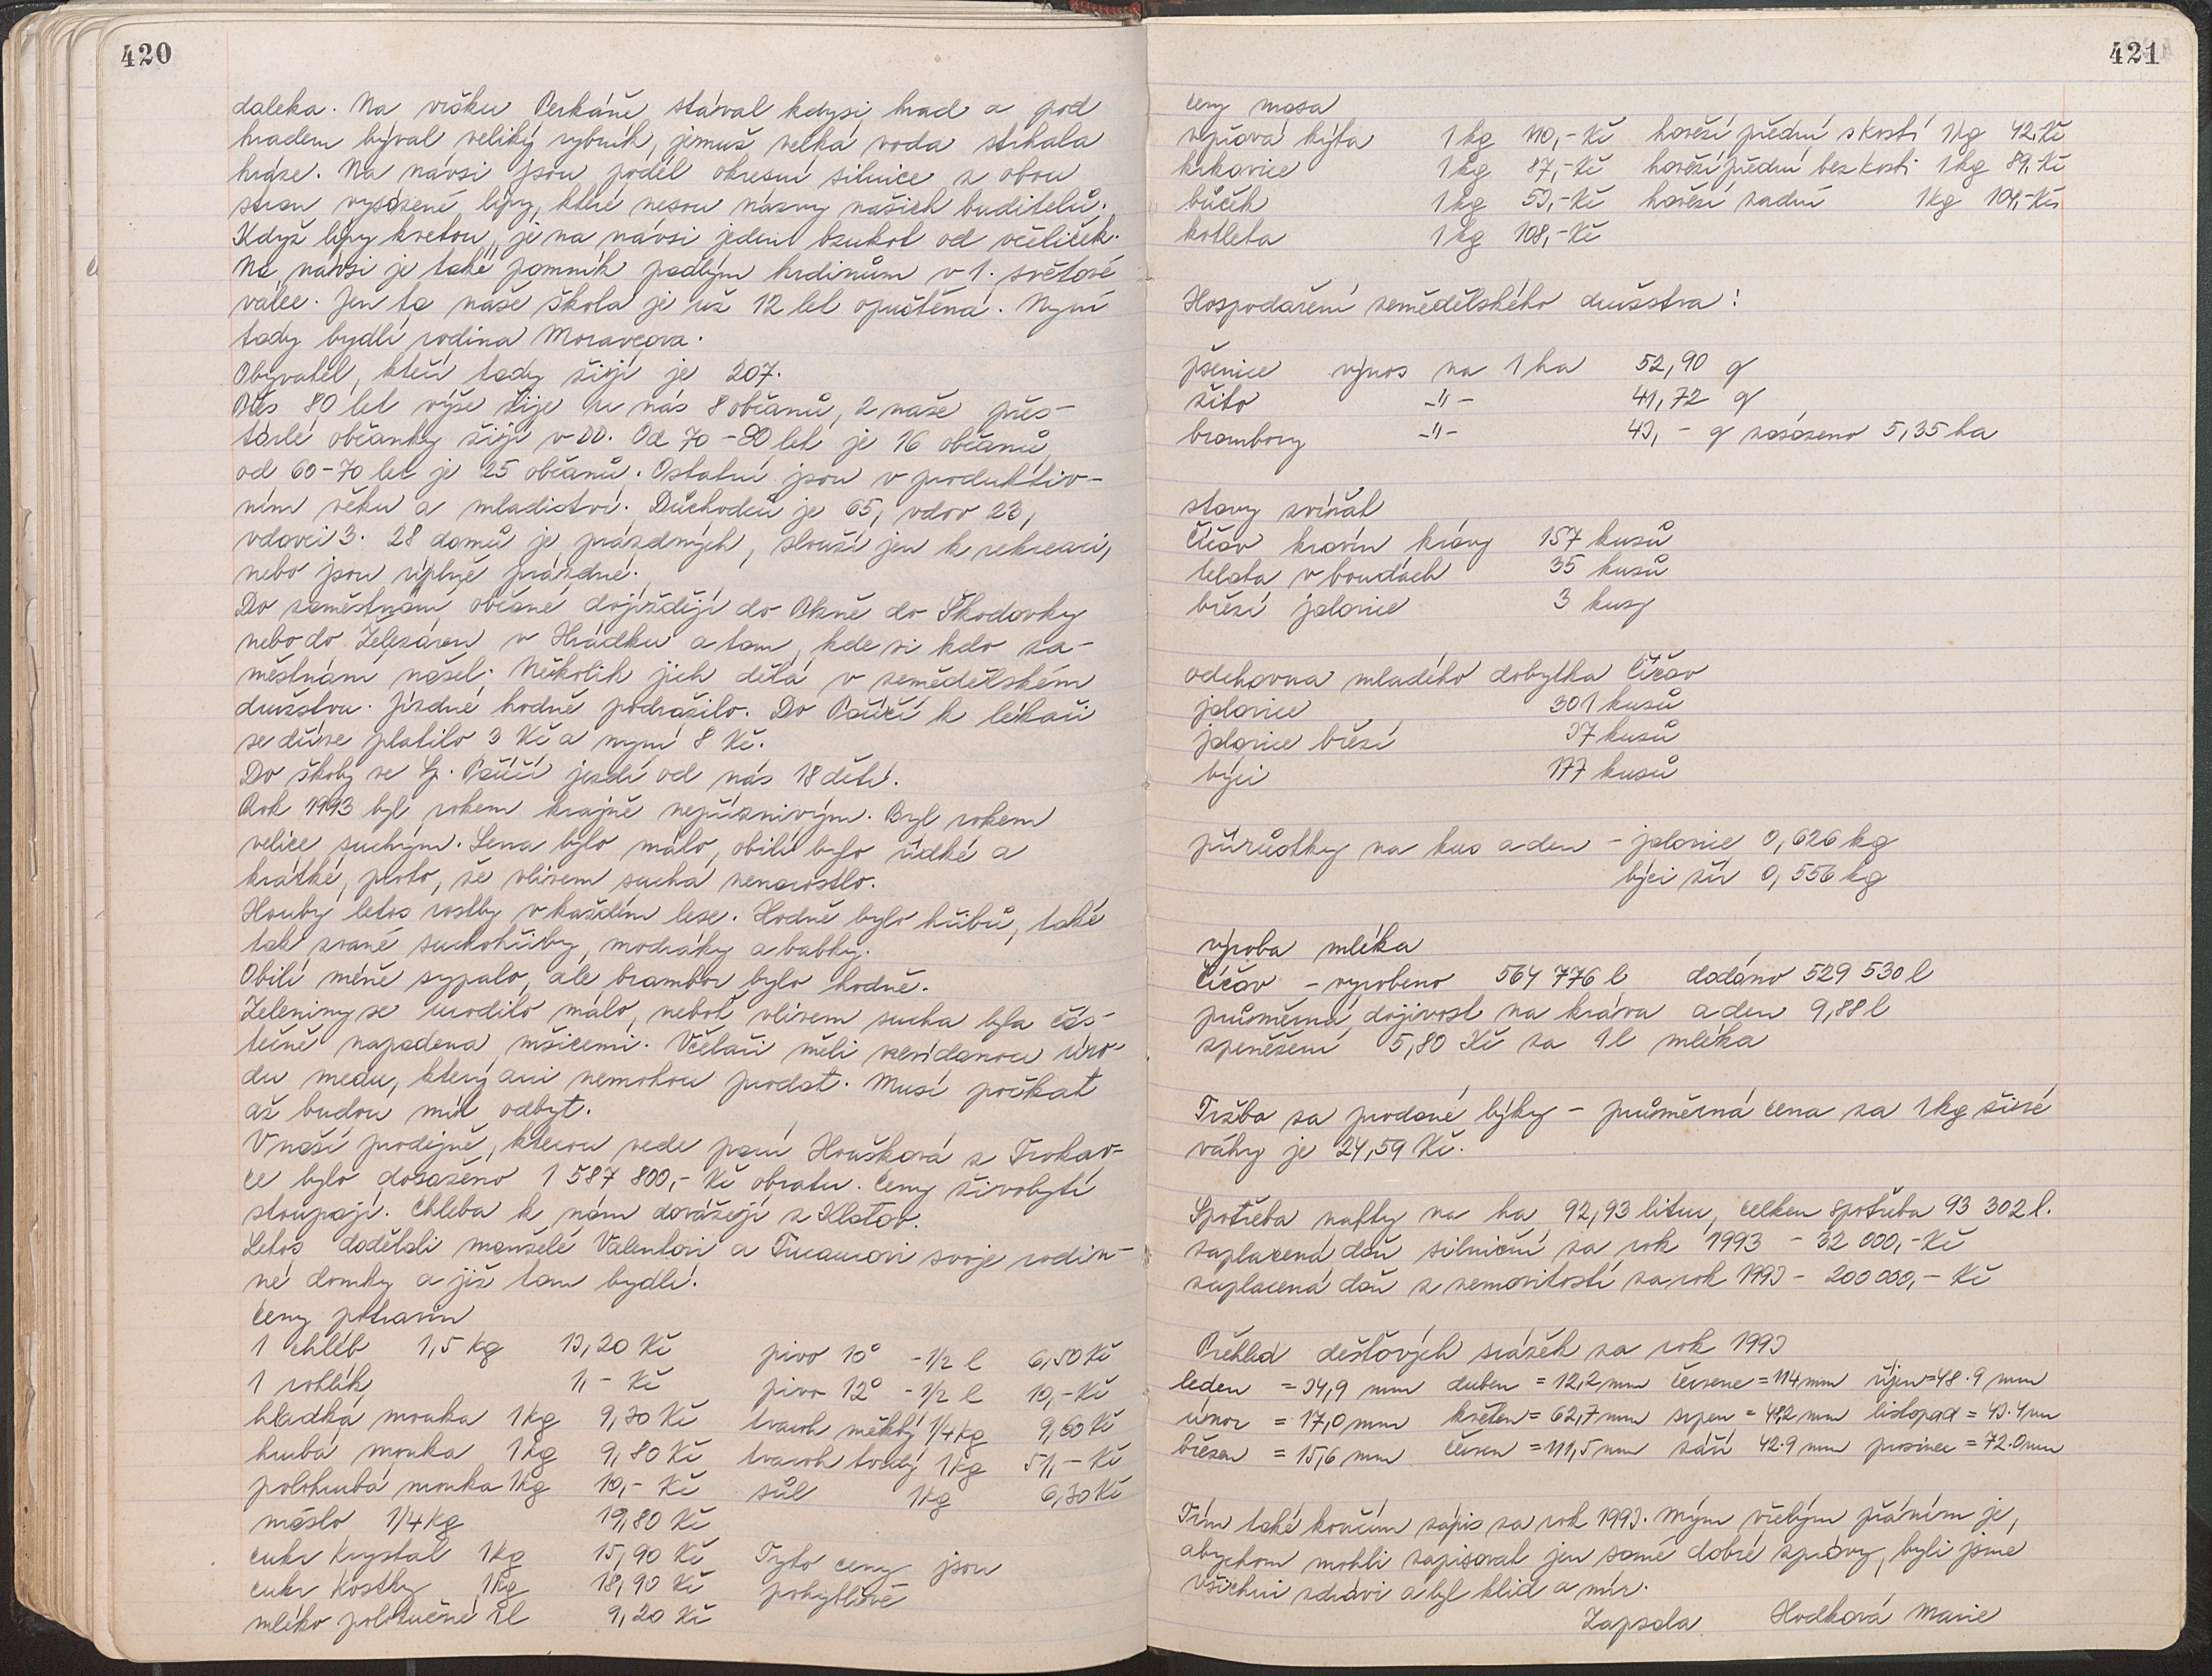 420
daleka. Na vršku Perkáně stával kdysi hrad a pod
hradem býval veliký rybník, jemuž velká voda strhala
hráze. Na návsi jsou podél okresní silnice z obou
stran vysázené lípy, které nesou názvy našich buditelů.
Když lípy kvetou, je na návsi jeden bzukot od včeliček.
Na návsi je také pomník padlým hrdinům v 1. světové
válce. Jen ta naše škola je už 12 let opuštěná. Nyní
tady bydlí rodina Moravcova.
Obyvatel, kteří tady žijí je 207.
Přes 80 let výše žije u nás 8 občanů, 2 naše přes-
tárlé občanky žijí v DD. Od 70 - 80 let je 16 občanů,
od 60 - 70 let je 25 občanů. Ostatní jsou v produktiv-
ním věku a mladiství. Důchodců je 65, vdov 23,
vdovci 3. 28 domů je prázdných, slouží jen k rekreaci,
nebo jsou úplně prázdné.
Do zaměstnání občané dojíždějí do Plzně do Škodovky
nebo do Železáren v Hrádku a tam, kde si kdo za-
městnání našel. Několik jich dělá v zemědělském
družstvu. Jízdné hodně podražilo. Do Poříčí k lékaři
se dříve platilo 3 Kč a nyní 8 Kč.
Do školy ve Sp. Poříčí jezdí od nás 18 dětí.
Rok 1993 byl rokem krajně nepříznivým. Byl rokem
velice suchým. Sena bylo málo, obilí bylo řídké a
krátké, proto, že vlivem sucha nenarostlo.
Houby letos rostly v každém lese. Hodně bylo hřibů, také
tak zvané suchohřiby, modráky a babky.
Obilí méně sypalo, ale brambor bylo hodně.
Zeleniny se urodilo málo, neboť vlivem sucha byla čás-
tečně napadena mšicemi. Včelaři měli nevídanou úro-
du medu, který ani nemohou prodat. Musí počkat
až budou mít odbyt.
V naší prodejně, kterou vede paní Hrušková z Trokav-
ce bylo dosaženo 1 587 800,- Kč obratu. Ceny živobytí
stoupají. Chleba k nám dovážejí z Klatov.
Letos dodělali manželé Valentovi a Tumovi svoje rodin-
né domky a již tam bydlí.
Ceny potravin
1 chléb 1,5 kg 13,20 Kč pivo 10° - 1/2 l 6,50 Kč
1 rohlík 1,- Kč pivo 12° - 1/2 l 10,- Kč
hladká mouka 1 kg 9,30 Kč tvaroh měkký 1/4 kg 9,60 Kč
hrubá mouka 1 kg 9,80 Kč tvaroh tvrdý 1 kg 51,- Kč
polohrubá mouka 1 kg 10,- Kč sůl 1 kg 6,30 Kč
máslo 1/4 kg 19,80 Kč
cukr krystal 1 kg 15,90 Kč Tyto ceny jsou
cukr kostky 1 kg 18,90 Kč pohyblivé
mléko polotučné 1 l 9,20 Kč
421
ceny masa
vepřová kýta 1 kg 110,- Kč hovězí přední s kostí 1 kg 42 Kč
krkovice 1 kg 87,- Kč hovězí přední bez kosti 1 kg 89,- Kč
bůček 1 kg 53,- Kč hovězí zadní 1 kg 104,- Kč
kotleta 1 kg 108,- Kč
Hospodaření zemědělského družstva:
pšenice výnos na 1 ha 52,90 q
žito -"- 41,72 q
brambory -"- 43,- q zasázeno 5,35 ha
stavy zvířat
Číčov kravín krávy 157 kusů
telata v boudách 35 kusů
březí jalovice 3 kusy
odchovna mladého dobytka Číčov
jalovice 301 kusů
jalovice březí 37 kusů
býci 177 kusů
přírůstky na kus a den - jalovice 0,626 kg
býci žír 0,556 kg
výroba mléka
Číčov - vyrobeno 564 776 l dodáno 529 530 l
průměrná dojivost na kráva a den 9,88 l
zpeněžení 5,80 Kč za 1 l mléka
Tržba za prodané býky - průměrná cena za 1 kg živé
váhy je 24,59 Kč.
Spotřeba nafty na ha 92,93 litru, celkem spotřeba 93 302 l.
zaplacená daň silniční za rok 1993 - 32 000,- Kč
zaplacená daň z nemovitostí za rok 1993 - 200 000,- Kč
Přehled dešťových srážek za rok 1993
leden = 34,9 mm duben = 12,2 mm červenec = 114 mm říjen = 48.9 mm
únor = 17,0 mm květen = 62,7 mm srpen = 48,2 mm listopad = 43.4 mm
březen = 15,6 mm červen = 111,5 mm září 42.9 mm prosinec = 72.0 mm
Tím také končím zápis za rok 1993. Mým vřelým přáním je,
abychom mohli zapisovat jen samé dobré zprávy, byli jsme
všichni zdrávi a byl klid a mír.
Zapsala Hodková Marie